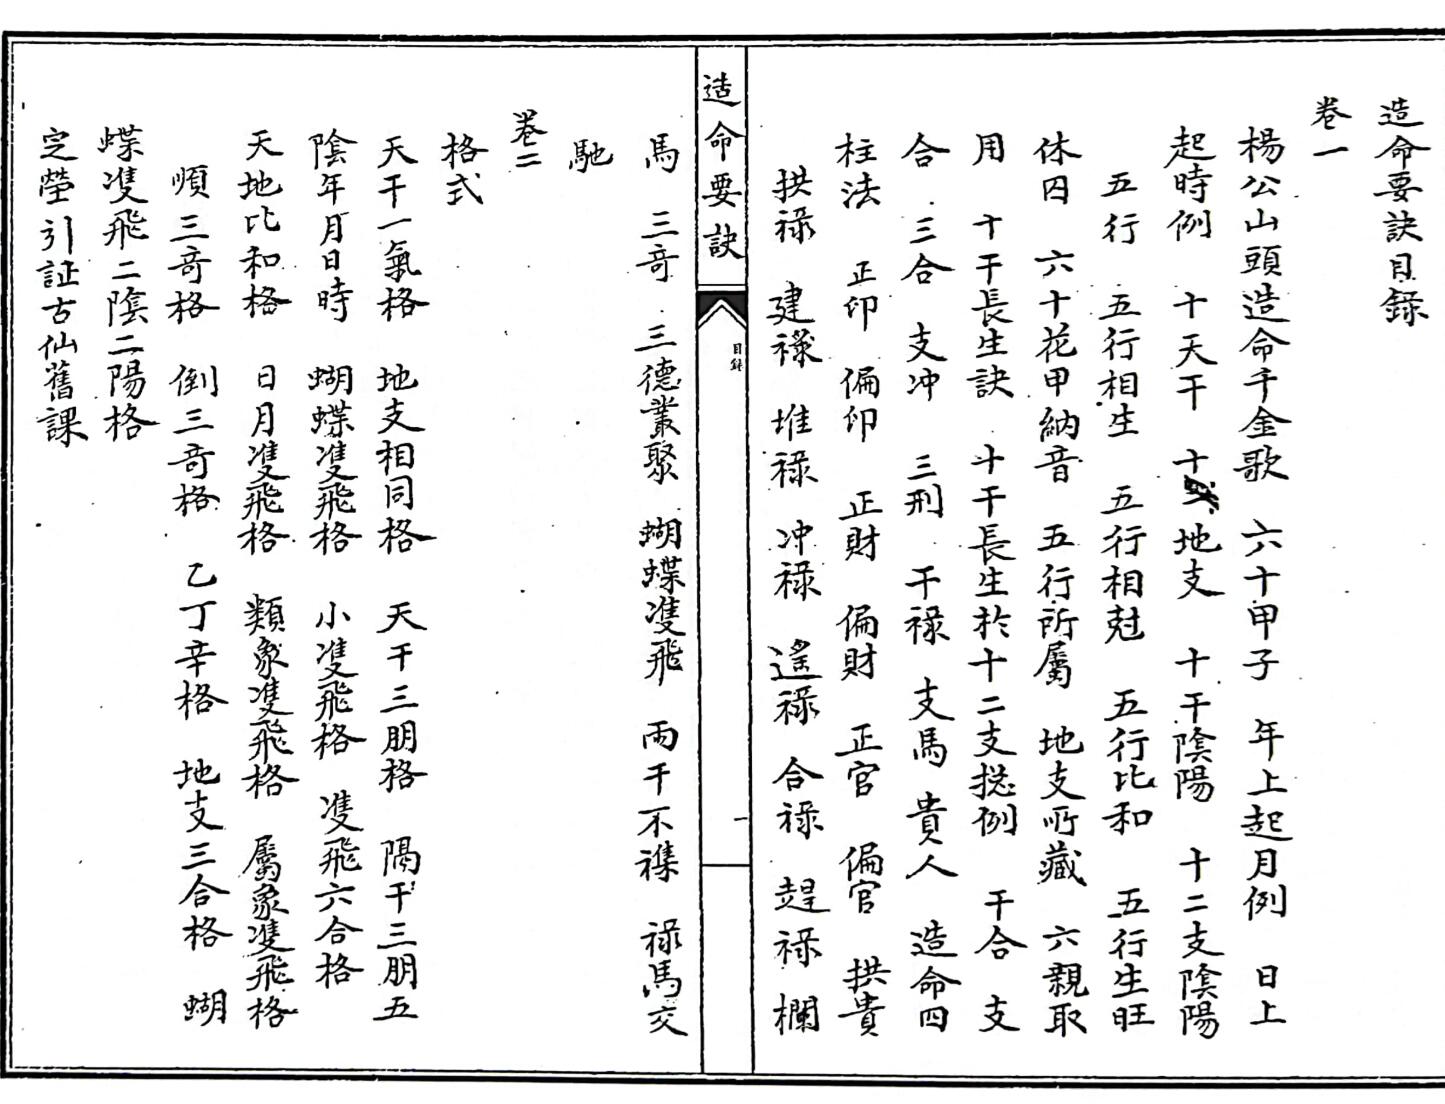 造命要訣目錄
卷一
楊公山頭造命千金歌　六十甲子　年上起月例　日上
起時例　十天干　十二地支　十干陰陽　十二支陰陽
五行　五行相生　五行相尅　五行比和　五行生旺
休囚　六十花甲納音　五行所屬　地支所藏　六親取
用　十干長生訣　十干長生於十二支捴例　干合　支
合　三合　支冲　三刑　干禄　支馬　貴人　造命四
柱法　正印　偏印　正財　偏財　正官　偏官　拱貴
拱禄　建禄　堆禄　冲禄　遙禄　合禄　趕禄　禄欄
造命要訣
目錄
一
馬　三竒　三德叢聚　蝴蝶𨾏飛　兩干不襍　禄馬交
馳
卷二
格式
天干一氣格　地支相同格　天干三朋格　隔干三朋五
陰年月日時　蝴蝶𨾏飛格　小𨾏飛格　𨾏飛六合格
天地比和格　日月𨾏飛格　類象𨾏飛格　屬象𨾏飛格
順三竒格　倒三竒格　乙丁辛格　地支三合格　蝴
蝶𨾏飛二陰二陽格
定塋引証古仙舊課